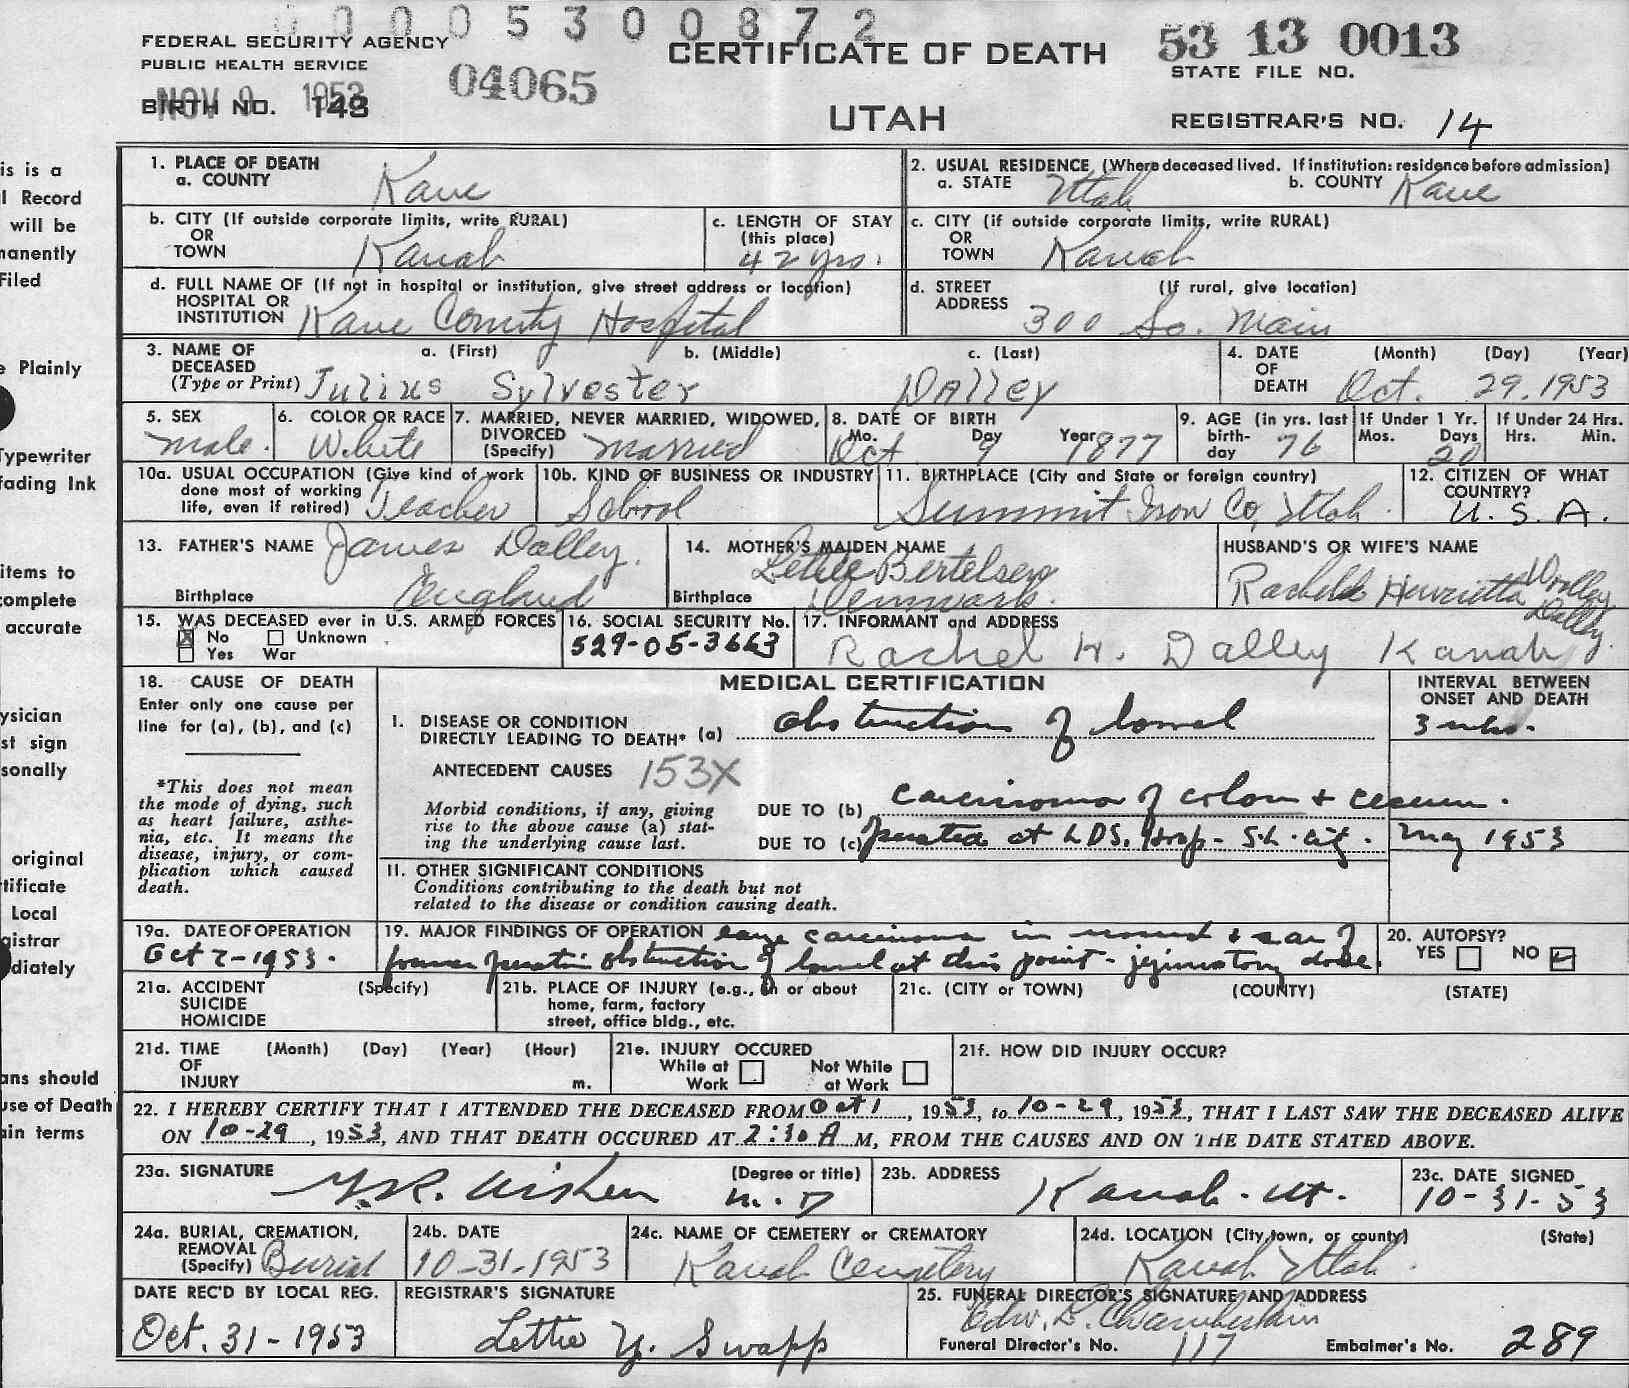 0 0 0 0 5 3 0 0 8 7 2
FEDERAL SECURITY AGENCY
PUBLIC HEALTH SERVICE
BIRTH NO. 143
NOV 9 1953
04065
CERTIFICATE OF DEATH
UTAH
53 13 0013
STATE FILE NO.
REGISTRAR'S NO. 14
is is a
l Record
will be
manently
Filed
e Plainly
Typewriter
fading Ink
items to
complete
accurate
ysician
st sign
sonally
original
tificate
Local
gistrar
diately
ans should
use of Death
ain terms
1. PLACE OF DEATH
a. COUNTY Kane
2. USUAL RESIDENCE (Where deceased lived. If institution: residence before admission)
a. STATE Utah b. COUNTY Kane
b. CITY (If outside corporate limits, write RURAL)
OR
TOWN Kanab
c. LENGTH OF STAY
(this place)
42 yrs.
c. CITY (if outside corporate limits, write RURAL)
OR
TOWN Kanab
d. FULL NAME OF (If not in hospital or institution, give street address or location)
HOSPITAL OR
INSTITUTION Kane County Hospital
d. STREET (If rural, give location)
ADDRESS 300 So. Main
3. NAME OF a. (First) b. (Middle) c. (Last)
DECEASED
(Type or Print) Julius Sylvester Dalley
4. DATE (Month) (Day) (Year)
OF
DEATH Oct. 29. 1953
5. SEX
Male.
6. COLOR OR RACE
White
7. MARRIED, NEVER MARRIED, WIDOWED,
DIVORCED
(Specify) Married
8. DATE OF BIRTH
Mo. Day Year
Oct 9 1877
9. AGE (in yrs. last
birth-
day 76
If Under 1 Yr.
Mos. Days
20
If Under 24 Hrs.
Hrs. Min.
10a. USUAL OCCUPATION (Give kind of work
done most of working
life, even if retired) Teacher
10b. KIND OF BUSINESS OR INDUSTRY
School
11. BIRTHPLACE (City and State or foreign country)
Summit Iron Co, Utah.
12. CITIZEN OF WHAT
COUNTRY?
U. S. A.
13. FATHER'S NAME James Dalley.
Birthplace England
14. MOTHER'S MAIDEN NAME
Bertelsen
Birthplace Denmark.
HUSBAND'S OR WIFE'S NAME
Rachel Henrietta Woolley
Dalley.
15. WAS DECEASED ever in U.S. ARMED FORCES
☒ No ☐ Unknown
☐ Yes War
16. SOCIAL SECURITY No.
529-05-3663
17. INFORMANT and ADDRESS
Rachel H. Dalley Kanab
18. CAUSE OF DEATH
Enter only one cause per
line for (a), (b), and (c)
*This does not mean
the mode of dying, such
as heart failure, asthe-
nia, etc. It means the
disease, injury, or com-
plication which caused
death.
MEDICAL CERTIFICATION
INTERVAL BETWEEN
ONSET AND DEATH
I. DISEASE OR CONDITION
DIRECTLY LEADING TO DEATH* (a) obstruction of bowel
3 wks.
ANTECEDENT CAUSES 153X
Morbid conditions, if any, giving
rise to the above cause (a) stat-
ing the underlying cause last.
DUE TO (b) carcinoma of colon + cecum.
DUE TO (c) operated at LDS. Hosp - S.L. City.
May 1953
11. OTHER SIGNIFICANT CONDITIONS
Conditions contributing to the death but not
related to the disease or condition causing death.
19a. DATE OF OPERATION
Oct 2-1953.
19. MAJOR FINDINGS OF OPERATION large carcinoma in wound + scar of
former operation obstruction of bowel at this point - jejunostomy done.
20. AUTOPSY?
YES ☐ NO ☑
21a. ACCIDENT (Specify)
SUICIDE
HOMICIDE
21b. PLACE OF INJURY (e.g., in or about
home, farm, factory
street, office bldg., etc.
21c. (CITY or TOWN) (COUNTY) (STATE)
21d. TIME (Month) (Day) (Year) (Hour)
OF
INJURY m.
21e. INJURY OCCURED
While at Work ☐ Not While at Work ☐
21f. HOW DID INJURY OCCUR?
22. I HEREBY CERTIFY THAT I ATTENDED THE DECEASED FROM Oct 1, 1953, to 10-29, 1953, THAT I LAST SAW THE DECEASED ALIVE
ON 10-29, 1953, AND THAT DEATH OCCURED AT 2:30 A M, FROM THE CAUSES AND ON THE DATE STATED ABOVE.
23a. SIGNATURE (Degree or title)
Aiken M. D
23b. ADDRESS
Kanab. Ut.
23c. DATE SIGNED
10-31-53
24a. BURIAL, CREMATION,
REMOVAL
(Specify) Burial
24b. DATE
10-31-1953
24c. NAME OF CEMETERY or CREMATORY
Kanab Cemetery
24d. LOCATION (City, town, or county) (State)
Kanab Utah.
DATE REC'D BY LOCAL REG.
Oct. 31-1953
REGISTRAR'S SIGNATURE
Lettie Y. Swapp
25. FUNERAL DIRECTOR'S SIGNATURE AND ADDRESS
Edw. G. Chamberlain
Funeral Director's No. 117 Embalmer's No. 289